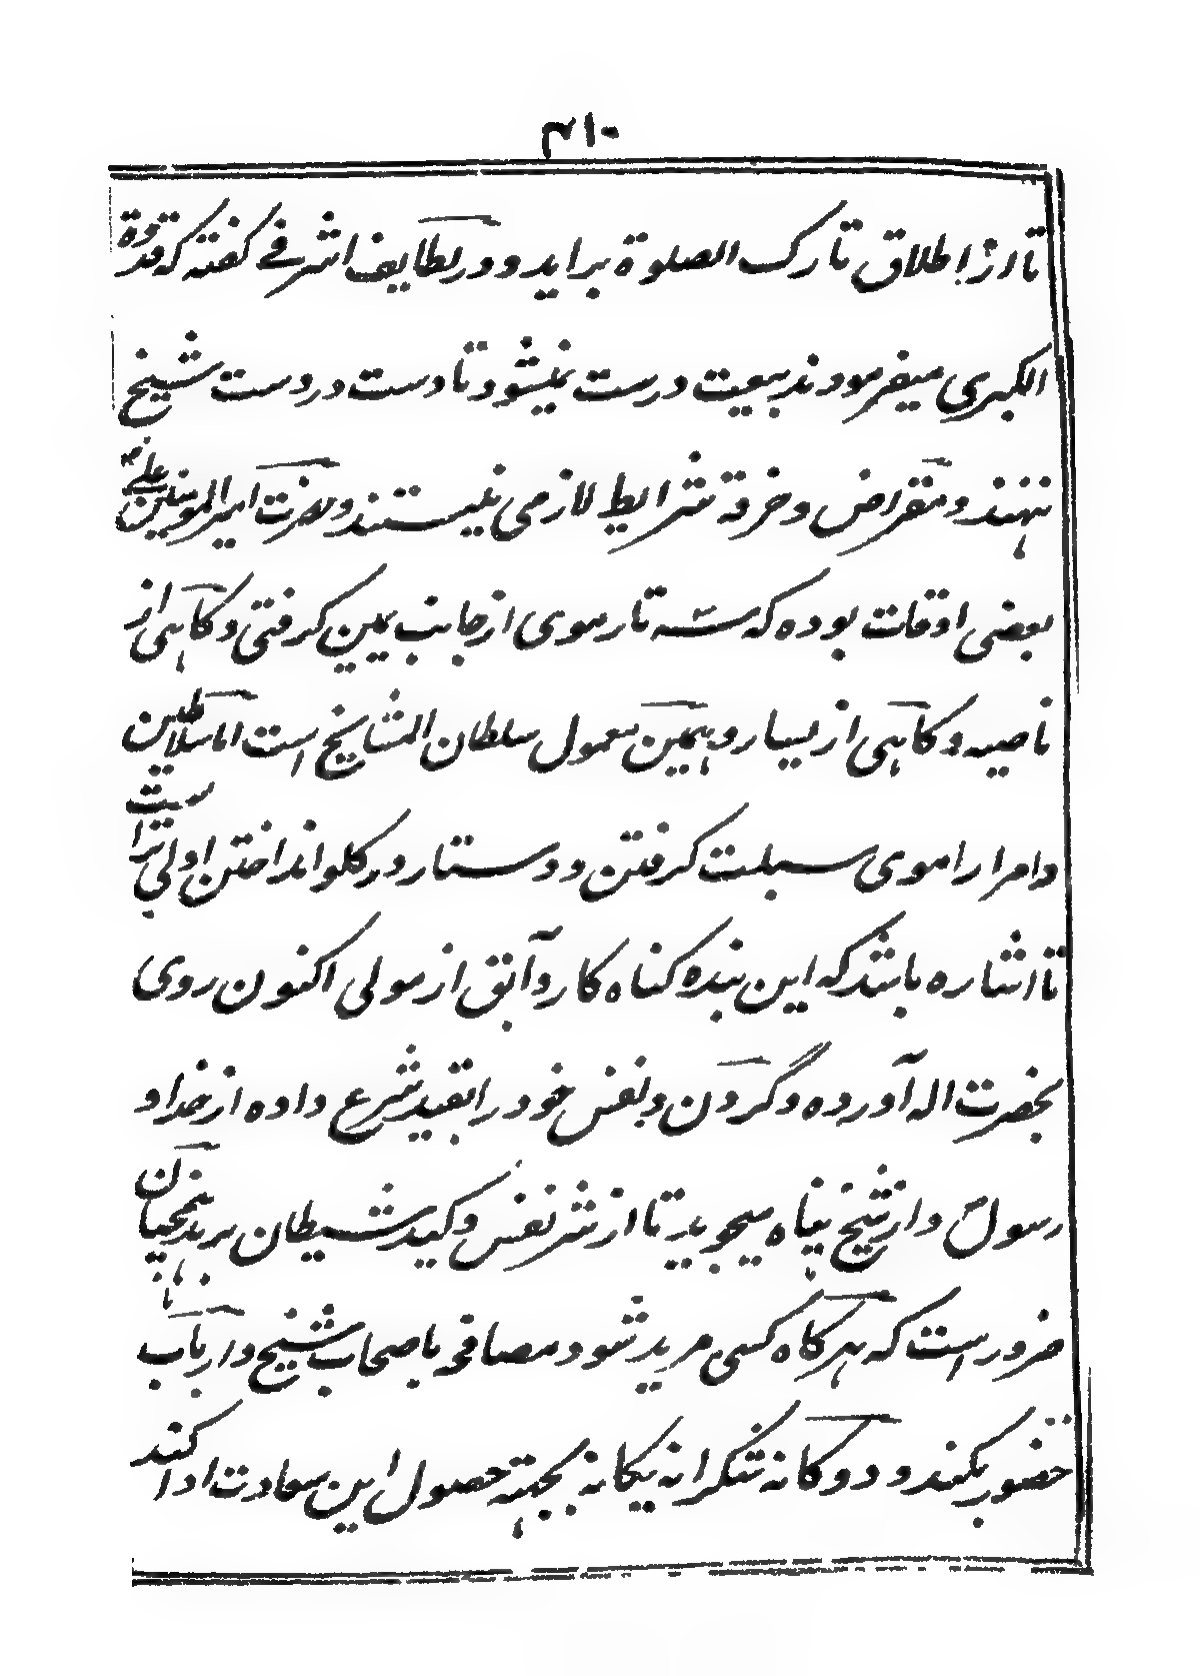 ۳۱۰
تا از اطلاق تارک الصلوة براید و در لطایف اشرفی گفته که قدوة
الکبری میفرمودند بیعت درست نمیشود تا دست در دست شیخ
ننهند و مقراض و خرقه شرایط لازمی نیستند و حضرت امیر المومنین علی رض
بعضی اوقات بوده که سه تار موی از جانب یمین گرفتی و گاهی از
ناصیه و گاهی از یسار و همین معمول سلطان المشایخ است اما سلاطین
و امرا را موی سبلت گرفتن و دستار در گلو انداختن اولی تر است
تا اشاره باشد که این بنده گناه گار و آبق از مولی اکنون روی
بحضرت اله آورده و گردن و نفس خود را بقید شرع داده از خدا و
رسول و از شیخ پناه میجوید تا از شر نفس و کید شیطان برهد همچنان
ضرور است که هرگاه کسی مرید شود مصافحه با صحاب شیخ و ارباب
حضور بکند و دوگانه شکرانه یگانه بجهته حصول این سعادت ادا کند